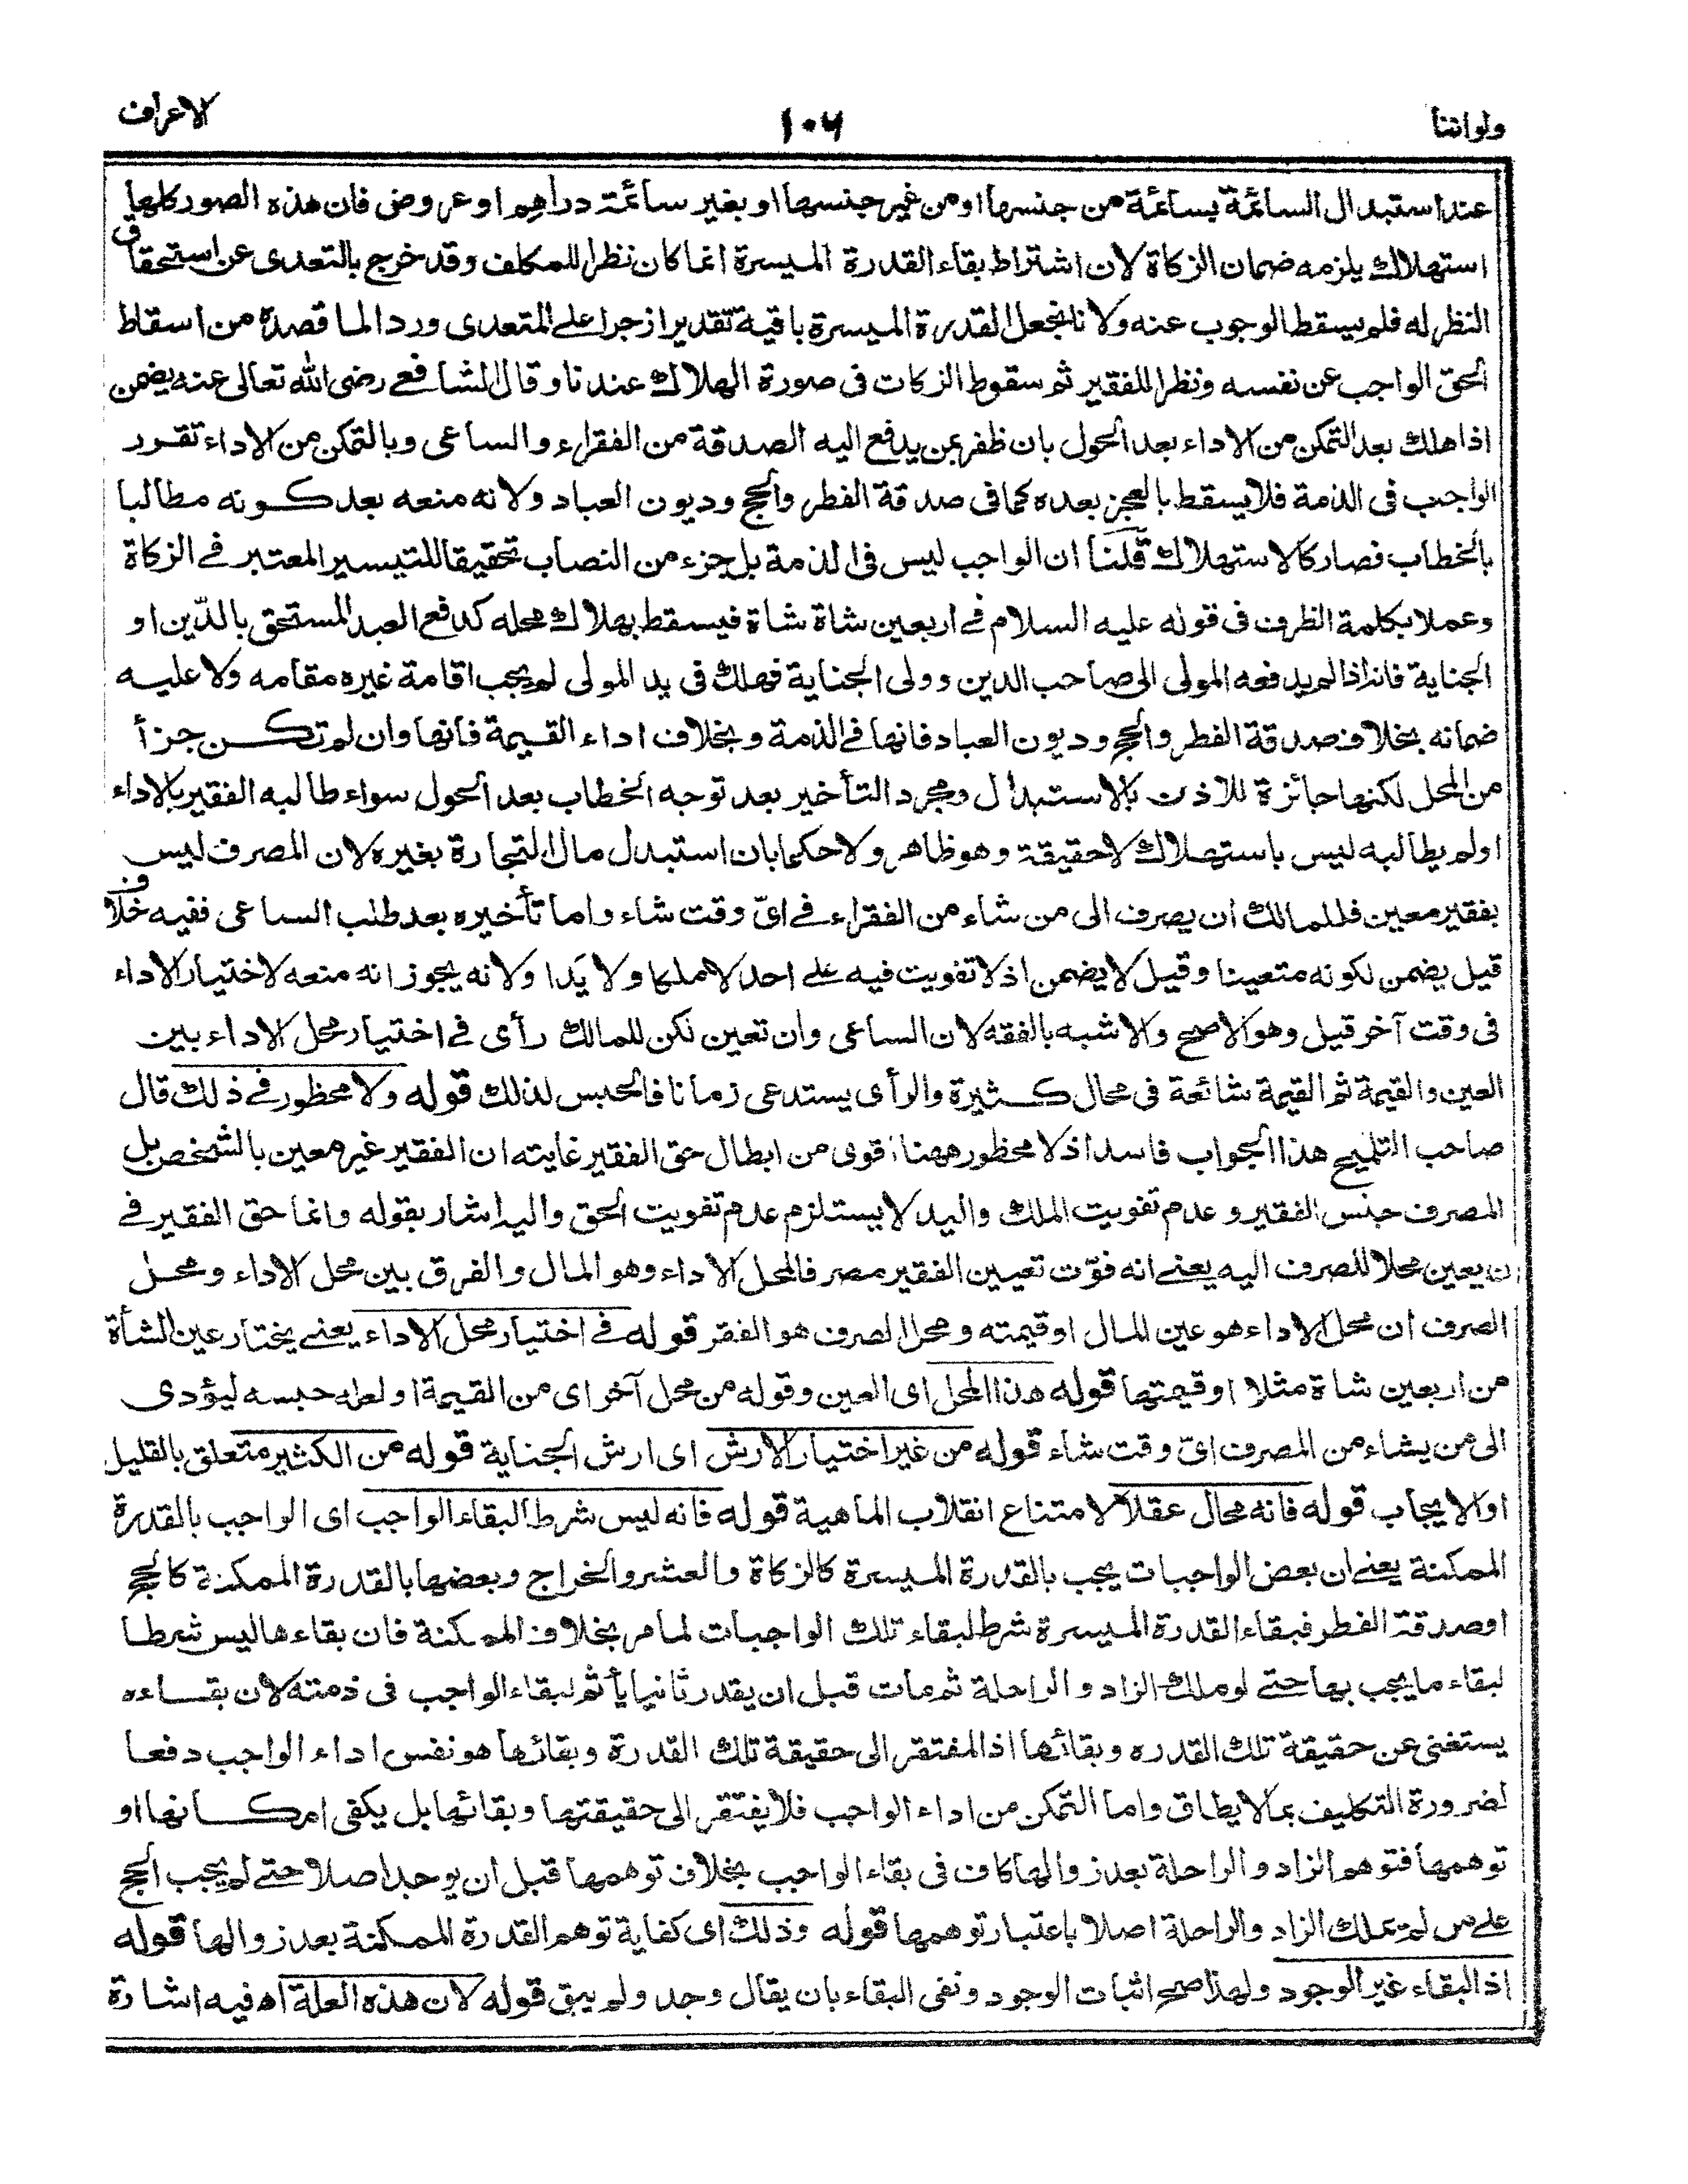 ولواننا
١٠٦
الاعراف
عند استبدال السائمة بسائمة من جنسها او من غير جنسها او بغير سائمة دراهم او عروض فان هذه الصور كلها
استهلاك يلزمه ضمان الزكاة لان اشتراط بقاء القدرة الميسرة انما كان نظرا للمكلف وقد خرج بالتعدى عن استحقاق
النظر له فلم يسقط الوجوب عنه ولانا نجعل القدرة الميسرة باقية تقديرا زجرا على المتعدى وردا لما قصده من اسقاط
الحق الواجب عن نفسه ونظرا للفقير ثم سقوط الزكات فى صورة الهلاك عندنا وقال الشافعے رضى الله تعالى عنه يضمن
اذا هلك بعد التمكن من الاداء بعد الحول بان ظفر بمن يدفع اليه الصدقة من الفقراء والساعى وبالتمكن من الاداء تقرر
الواجب فى الذمة فلا يسقط بالعجز بعده كما فى صدقة الفطر والحج وديون العباد ولانه منعه بعد كونه مطالبا
بالخطاب فصار كالاستهلاك قلنا ان الواجب ليس فى الذمة بل جزء من النصاب تحقيقا للتيسير المعتبر فے الزكاة
وعملا بكلمة الظرف فى قوله عليه السلام فے اربعين شاة شاة فيسقط بهلاك محله كدفع العبد المستحق بالدّين او
الجناية فانه اذا لم يدفعه المولى الى صاحب الدين وولى الجناية فهلك فى يد المولى لم يجب اقامة غيره مقامه ولا عليه
ضمانه بخلاف صدقة الفطر والحج وديون العباد فانها فے الذمة وبخلاف اداء القيمة فانها وان لم تكن جزأ
من المحل لكنها جائزة للاذن بالاستبدال ومجرد التأخير بعد توجه الخطاب بعد الحول سواء طالبه الفقير بالاداء
اولم يطالبه ليس باستهلاك لا حقيقة وهو ظاهر ولا حكما بان استبدل مال التجارة بغيره لان المصرف ليس
بفقير معين فللمالك ان يصرف الى من شاء من الفقراء فے اىّ وقت شاء واما تأخيره بعد طلب الساعى ففيه خلاف
قيل يضمن لكونه متعينا وقيل لا يضمن اذ لا تفويت فيه على احد لا ملكا ولا يَدا ولانه يجوز انه منعه لاختيار الاداء
فى وقت آخر قيل وهو الاصح والاشبه بالفقه لان الساعى وان تعين لكن للمالك رأى فے اختيار محل الاداء بين
العين والقيمة ثم القيمة شائعة فى محال كثيرة والرأى يستدعى زمانا فالحبس لذلك قوله ولا محظور فے ذلك قال
صاحب التلميح هذا الجواب فاسد اذ لا محظور ههنا اقوى من ابطال حق الفقير غايته ان الفقير غير معين بالشخص بل
المصرف جنس الفقير وعدم تفويت الملك واليد لا يستلزم عدم تفويت الحق واليه اشار بقوله وانما حق الفقير فے
ان يعين محلا للصرف اليه يعنے انه فوّت تعيين الفقير مصرفا لمحل الاداء وهو المال والفرق بين محل الاداء ومحل
الصرف ان محل الاداء هو عين المال او قيمته ومحل الصرف هو الفقر قوله فے اختيار محل الاداء يعنے يختار عين الشأة
من اربعين شاة مثلا او قيمتها قوله هذا المحل اى العين وقوله من محل آخر اى من القيمة او لعله حبسه ليؤدى
الى من يشاء من المصرف اىّ وقت شاء قوله من غير اختيار الارش اى ارش الجناية قوله من الكثير متعلق بالقليل
او الايجاب قوله فانه محال عقلا لامتناع انقلاب الماهية قوله فانه ليس شرط البقاء الواجب اى الواجب بالقدرة
الممكنة يعنے ان بعض الواجبات يجب بالقدرة الميسرة كالزكاة والعشر والخراج وبعضها بالقدرة الممكنة كالحج
او صدقة الفطر فبقاء القدرة الميسرة شرط لبقاء تلك الواجبات لما مر بخلاف الممكنة فان بقاءها ليس شرطا
لبقاء ما يجب بها حتے لو ملك الزاد والراحلة ثم مات قبل ان يقدر ثانيا يأثم لبقاء الواجب فى ذمته لان بقاءه
يستغنى عن حقيقة تلك القدره وبقائها اذ المفتقر الى حقيقة تلك القدرة وبقائها هو نفس اداء الواجب دفعا
لضرورة التكليف بما لا يطاق واما التمكن من اداء الواجب فلا يفتقر الى حقيقتها وبقائها بل يكفى امكانها او
توهمها فتوهم الزاد والراحلة بعد زوالها كاف فى بقاء الواجب بخلاف توهمها قبل ان يوجد اصلا حتے لم يجب الحج
علے من لم يملك الزاد والراحلة اصلا باعتبار توهمها قوله وذلك اى كفاية توهم القدرة الممكنة بعد زوالها قوله
اذ البقاء غير الوجود ولهذا صح اثبات الوجود ونفى البقاء بان يقال وجد ولم يبق قوله لان هذه العلة اه فيه اشارة